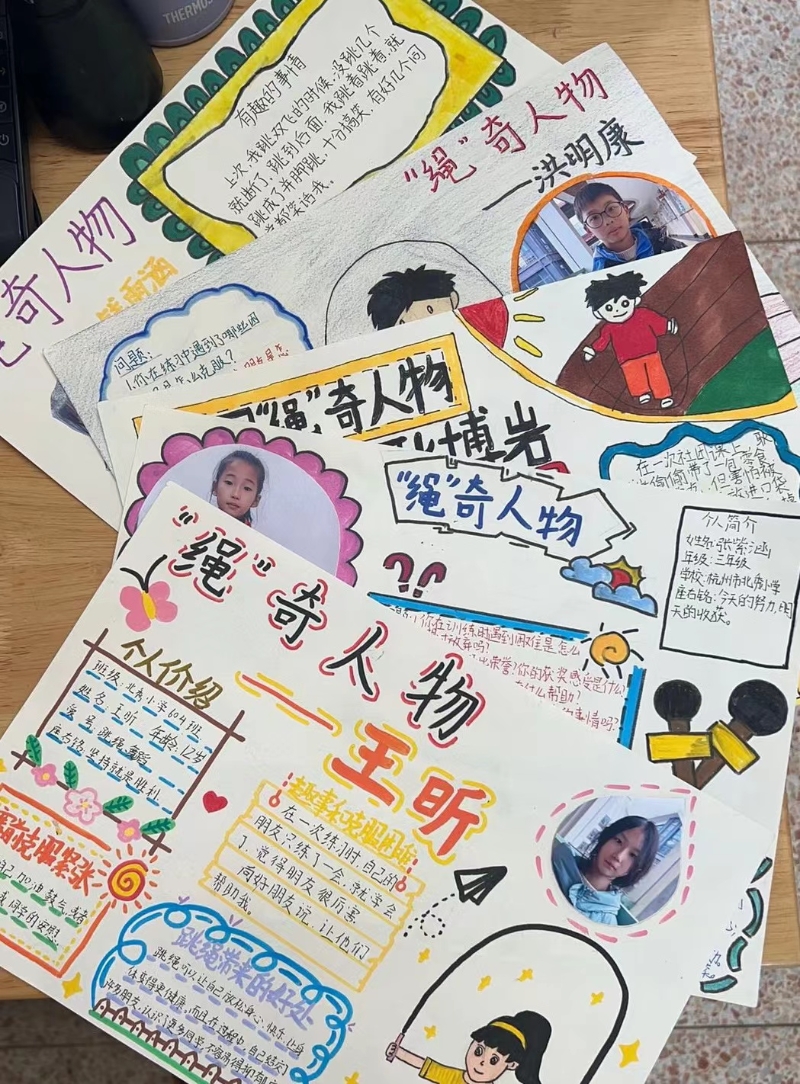 THERMOS
有趣的事情
上次,我跳双飞的时候,没跳几个
就断了,跳到后面,我跳着跳着,就
跳成了并脚跳,十分搞笑,有好几个同
学都笑话我。
奇人物
“绳”奇人物
—洪明康
问题:
1.你在练习中遇到了哪些困
“绳”奇人物
博岩
在一次社团课上,耿
偷偷带了一包零食
但害怕被
进口袋
“绳”奇人物
个人简介
姓名:张紫涵
年级:三年级
学校:杭州市北秀小学
座右铭:今天的努力,明
天的收获。
你在训练时遇到困难是怎么
放弃吗?
荣誉?你的获奖感受是什么?
什么帮助?
事情吗?
“绳”奇人物
——王昕
个人介绍
班级:北秀小学604班
姓名:王昕 年龄:12岁
爱号:跳绳、舞蹈
座右铭:坚持就是胜利
趣事和克服困难
在一次练习时,自己的
朋友只练了一会,就学会
了,觉得朋友很厉害,
向好朋友说,让他们
帮助我。
克服紧张
自己加油鼓气,或者
同学的安慰
跳绳带来的好处
跳绳可以让自己放松身心,快乐,让身
体变得更健康,而且在过程中,自己结交了
许多朋友,认识了更多同学